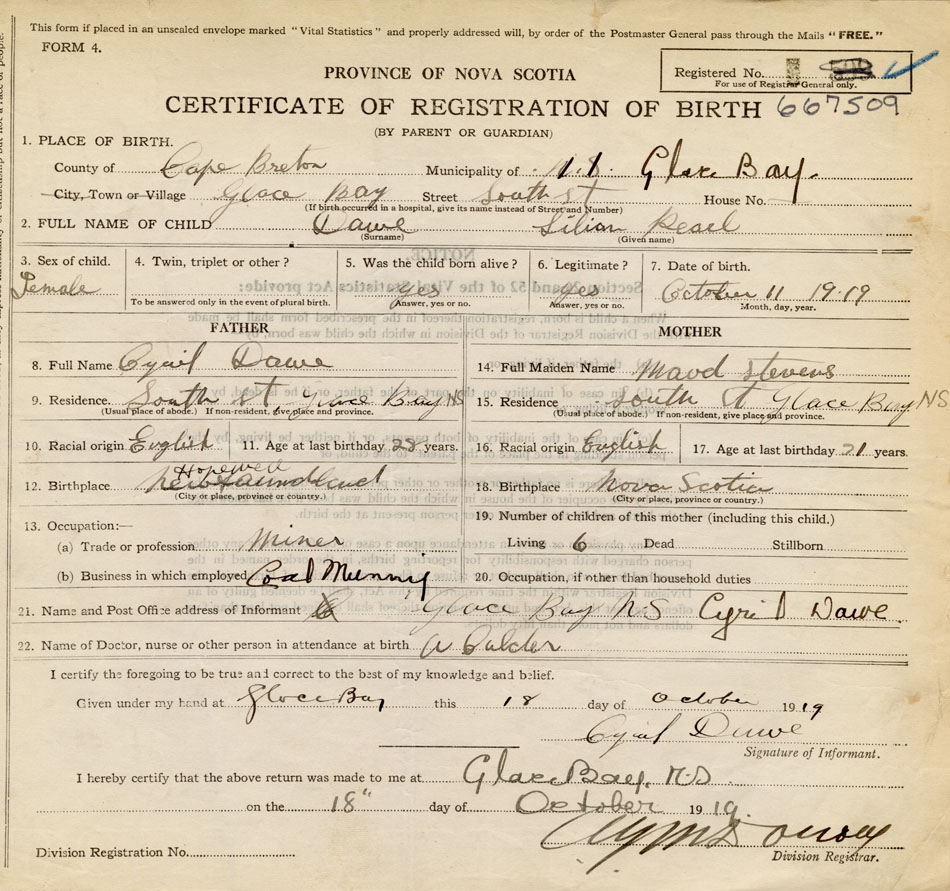 This form if placed in an unsealed envelope marked "Vital Statistics" and properly addressed will, by order of the Postmaster General pass through the Mails "FREE."
FORM 4.
PROVINCE OF NOVA SCOTIA
Registered No.
For use of Registrar General only.
CERTIFICATE OF REGISTRATION OF BIRTH 667509
(BY PARENT OR GUARDIAN)
1. PLACE OF BIRTH.
County of Cape Breton Municipality of Glace Bay.
City, Town or Village Glace Bay Street South St House No.
(If birth occurred in a hospital, give its name instead of Street and Number)
2. FULL NAME OF CHILD Dawe Lilian
(Surname) (Given name)
3. Sex of child. 4. Twin, triplet or other? 5. Was the child born alive? 6. Legitimate? 7. Date of birth.
Female yes yes October 11 1919
To be answered only in the event of plural birth. Answer, yes or no. Answer, yes or no. Month, day, year.
FATHER MOTHER
8. Full Name Cyril Dawe 14. Full Maiden Name Maud Stevens
9. Residence. South St Glace Bay NS 15. Residence South St Glace Bay NS
(Usual place of abode.) If non-resident, give place and province. (Usual place of abode.) If non-resident, give place and province.
10. Racial origin English 11. Age at last birthday 28 years. 16. Racial origin English 17. Age at last birthday 21 years.
Hopewell
12. Birthplace Newfoundland 18. Birthplace Nova Scotia
(City or place, province or country.) (City or place, province or country.)
13. Occupation:— 19. Number of children of this mother (including this child.)
(a) Trade or profession Miner Living 6 Dead Stillborn
(b) Business in which employed Coal 20. Occupation, if other than household duties
21. Name and Post Office address of Informant Glace Bay NS Cyril Dawe
22. Name of Doctor, nurse or other person in attendance at birth A Calder
I certify the foregoing to be true and correct to the best of my knowledge and belief.
Given under my hand at Glace Bay this 18 day of October 1919
Cyril Dawe
Signature of Informant.
I hereby certify that the above return was made to me at Glace Bay, N.S.
on the 18" day of October 1919.
Division Registration No.
Division Registrar.